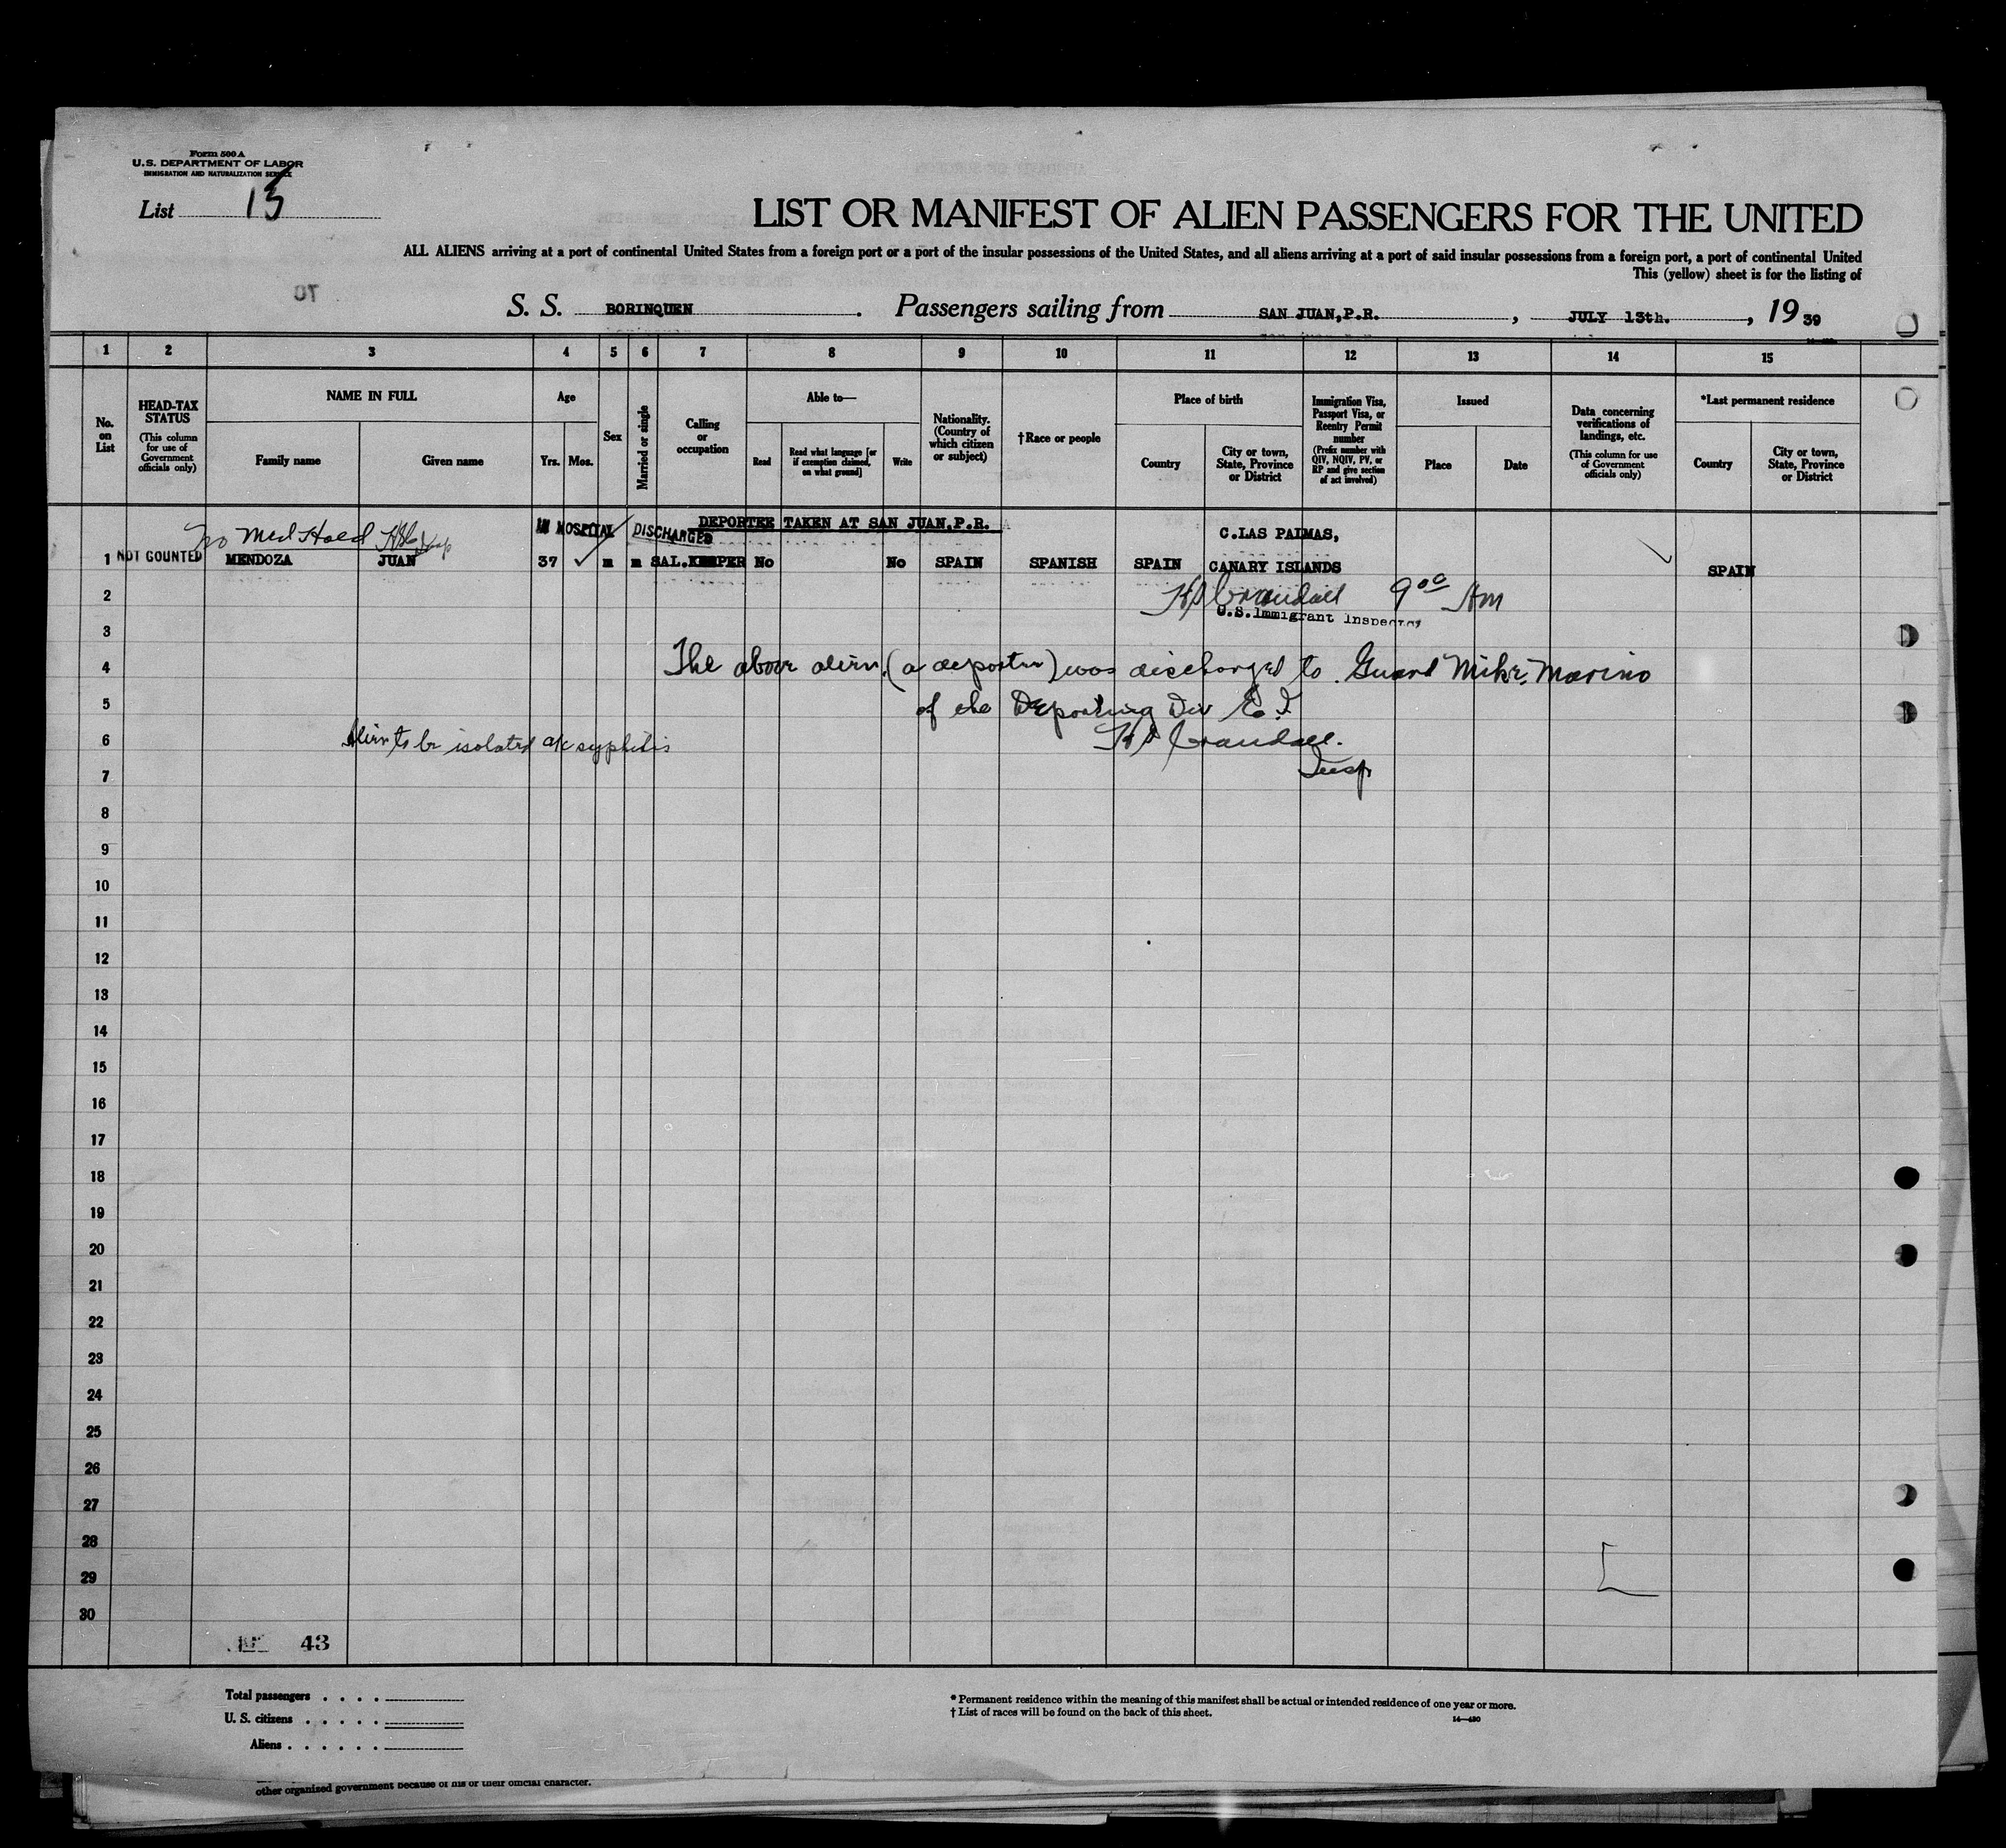 Form 500 A
U.S. DEPARTMENT OF LABOR
IMMIGRATION AND NATURALIZATION SERVICE
List 15
LIST OR MANIFEST OF ALIEN PASSENGERS FOR THE UNITED
ALL ALIENS arriving at a port of continental United States from a foreign port or a port of the insular possessions of the United States, and all aliens arriving at a port of said insular possessions from a foreign port, a port of continental United
This (yellow) sheet is for the listing of
S. S. BORINQUEN. Passengers sailing from SAN JUAN,P.R., JULY 13th., 19 39
1 2 3 4 5 6 7 8 9 10 11 12 13 14 15
No. on List
HEAD-TAX STATUS
(This column for use of Government officials only)
NAME IN FULL
Family name
Given name
Age
Yrs. Mos.
Sex
Married or single
Calling or occupation
Able to—
Read
Read what language [or if exemption claimed, on what ground]
Write
Nationality. (Country of which citizen or subject)
†Race or people
Place of birth
Country
City or town, State, Province or District
Immigration Visa, Passport Visa, or Reentry Permit number
(Prefix number with QIV, NQIV, PV, or RP and give section of act involved)
Issued
Place
Date
Data concerning verifications of landings, etc.
(This column for use of Government officials only)
*Last permanent residence
Country
City or town, State, Province or District
No Med Hold
IN HOSPITAL
DISCHARGED
DEPORTEE TAKEN AT SAN JUAN.P.R.
C.LAS PALMAS,
1 NOT COUNTED MENDOZA JUAN 37 m m SAL.KEEPER No No SPAIN SPANISH SPAIN CANARY ISLANDS SPAIN
2 Crandall 9 00 Am
U.S.Immigrant Inspector
3
4 The above alien (a deportee) was discharged to Guard Mike Marino
5 of the Deporting Div E.I.
6 Alien to be isolated a/c syphilis Crandall.
7 Insp
8
9
10
11
12
13
14
15
16
17
18
19
20
21
22
23
24
25
26
27
28
29
30
43
Total passengers . . . .
U. S. citizens . . . . .
Aliens . . . . . .
* Permanent residence within the meaning of this manifest shall be actual or intended residence of one year or more.
† List of races will be found on the back of this sheet.
14—430
other organized government because of his or their official character.